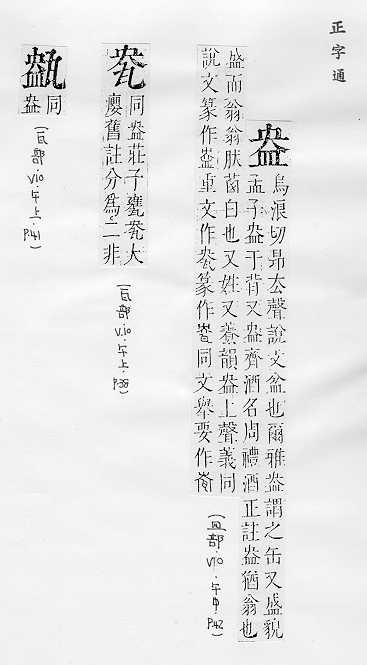 正字通
盎
烏浪切昂去聲說文盆也爾雅盎謂之缶又盛貌
孟子盎于背又盎齊酒名周禮酒正註盎猶翁也
盛而翁翁肤葱白也又姓又養韻盎上聲義同
說文篆作盎重文作瓮篆作㼜同文舉要作
(皿部 V10.午中.P42)
瓮
同盎莊子甕瓮大
癭舊註分為二非
(瓦部 V10.午上.P38)
同
盎
(瓦部 V10.午上.P41)